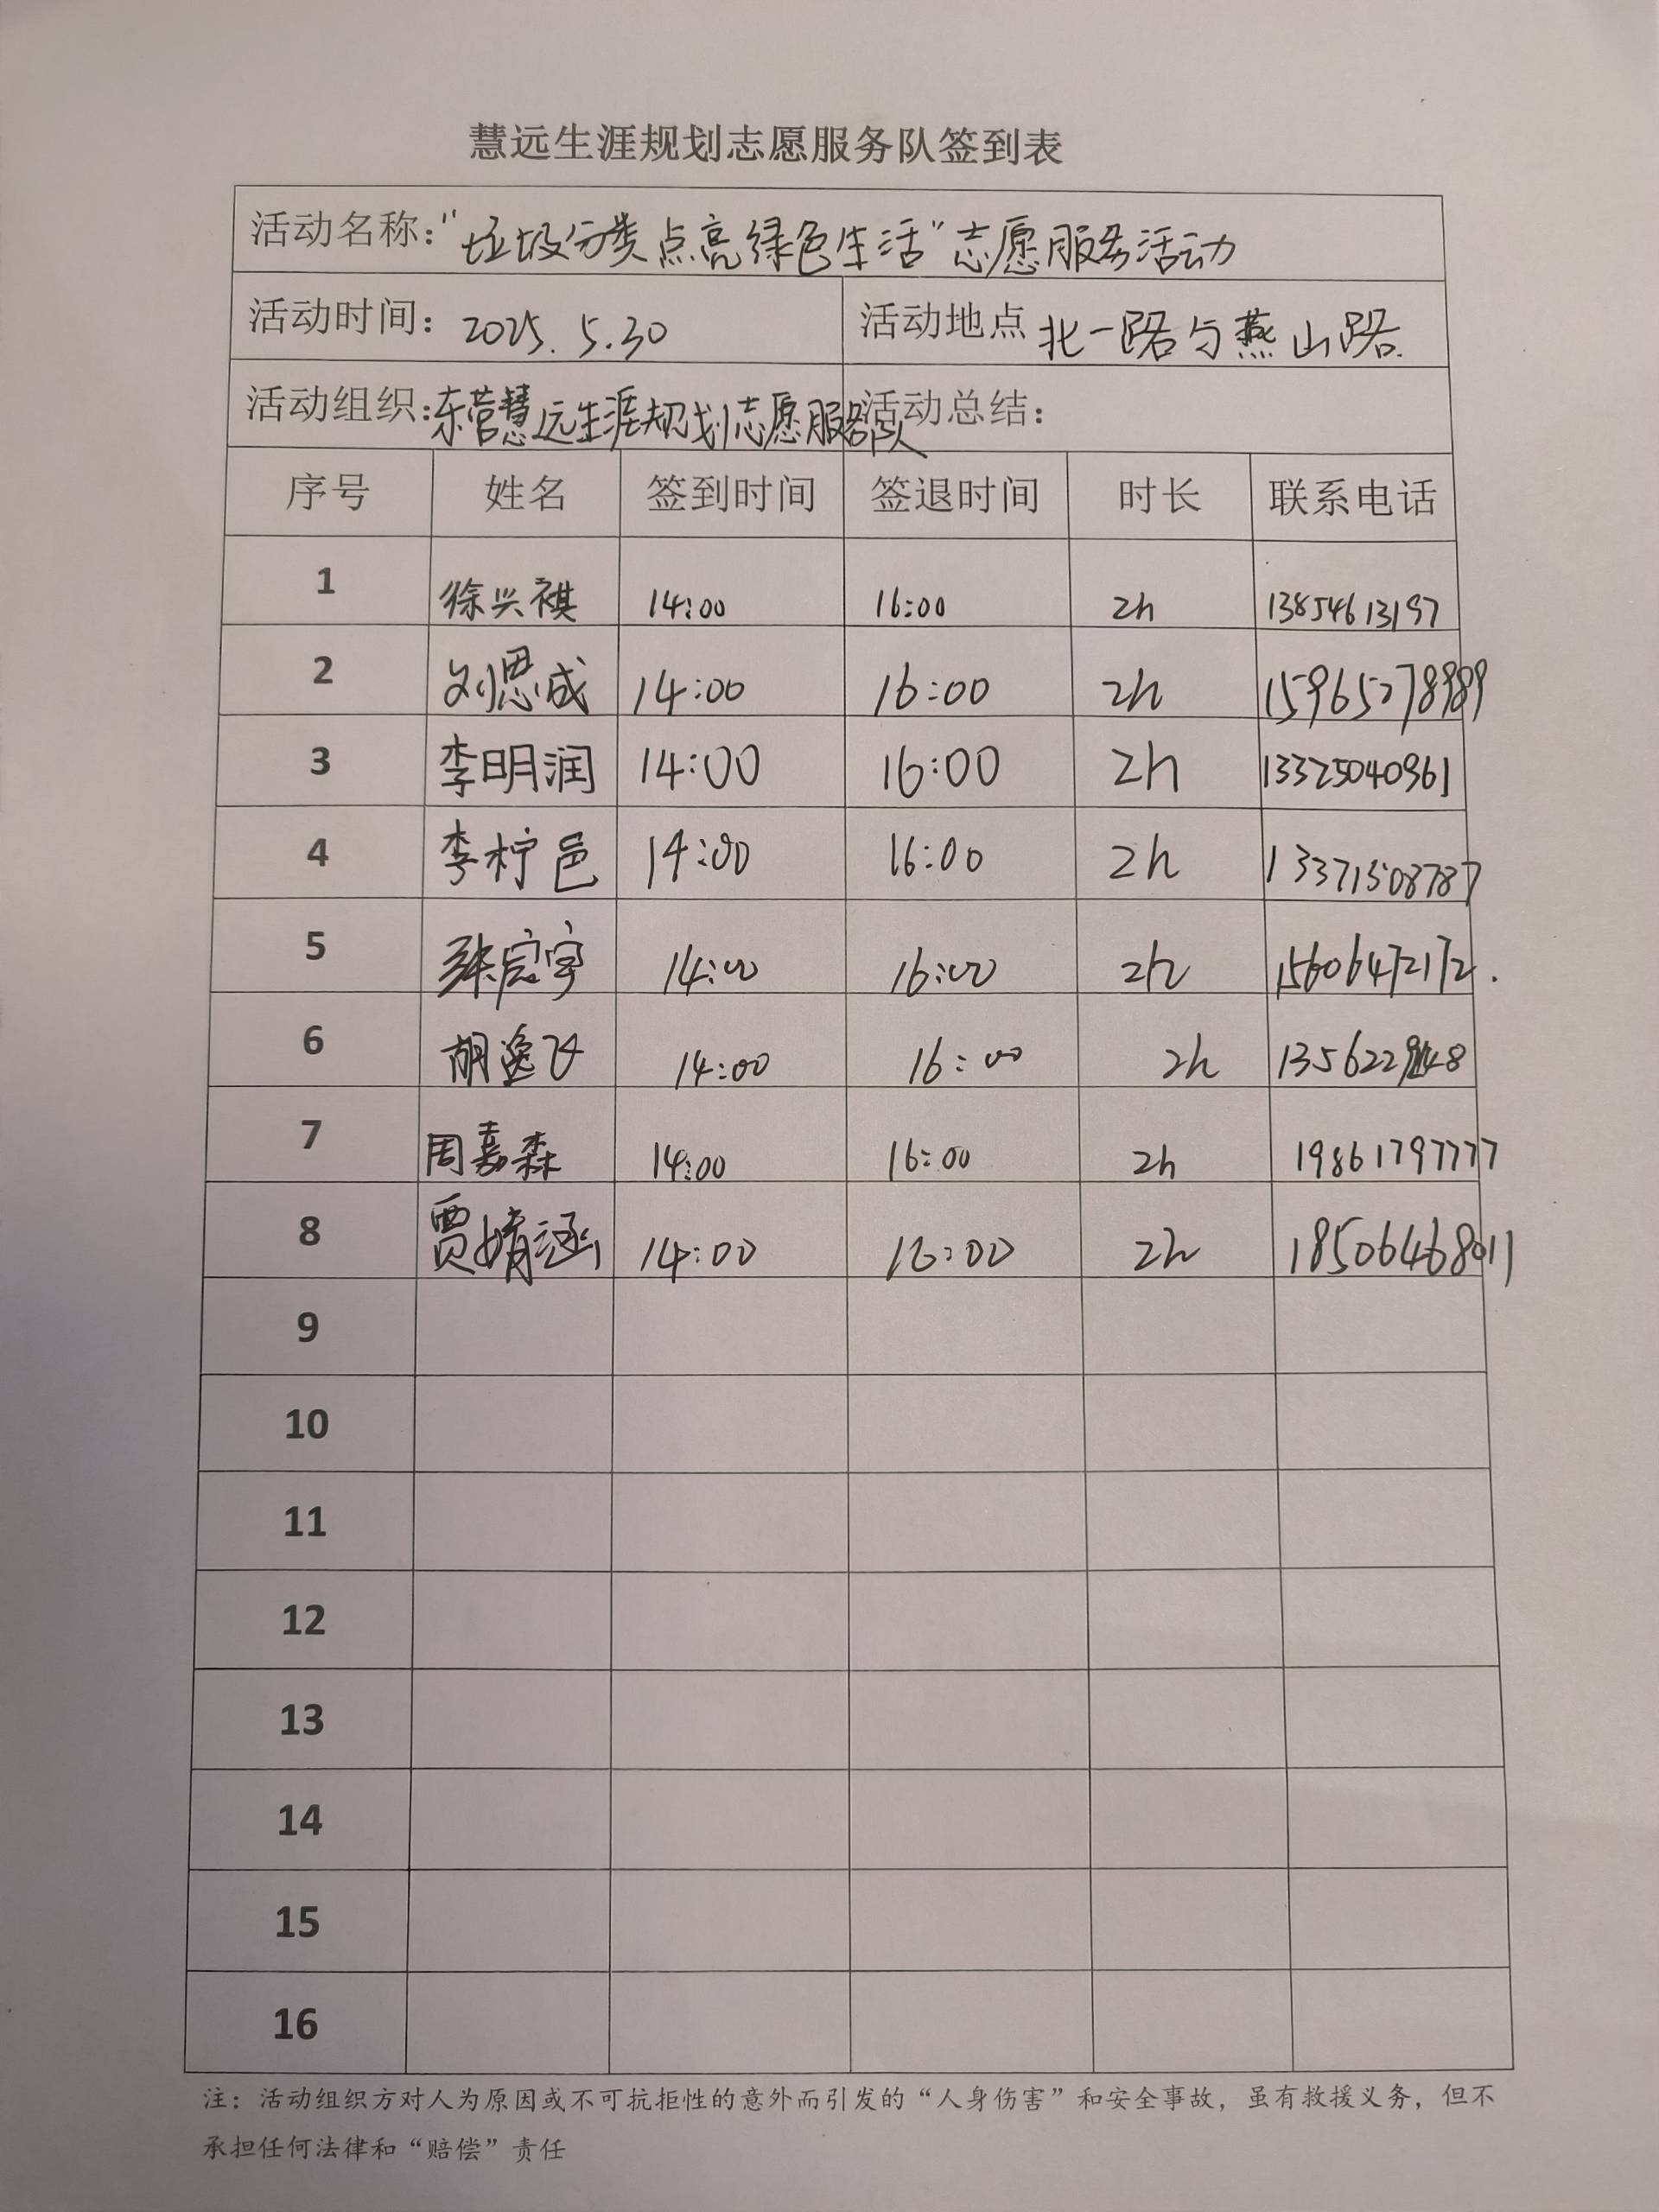 慧远生涯规划志愿服务队签到表
活动名称："垃圾分类点亮绿色生活"志愿服务活动
活动时间：2025.5.30 活动地点 北一路与燕山路.
活动组织：东营慧远生涯规划志愿服务队 活动总结：
序号 姓名 签到时间 签退时间 时长 联系电话
1 徐兴祺 14:00 16:00 2h 13854613197
2 刘恩成 14:00 16:00 2h 15965278989
3 李明润 14:00 16:00 2h 13325040961
4 李柠邑 14:00 16:00 2h 13371508787
5 张宸宇 14:00 16:00 2h 15606472172.
6 胡逸飞 14:00 16:00 2h
7 周嘉森 14:00 16:00 2h 19861797777
8 贾婧涵 14:00 16:00 2h 18506468011
9
10
11
12
13
14
15
16
注：活动组织方对人为原因或不可抗拒性的意外而引发的“人身伤害”和安全事故，虽有救援义务，但不
承担任何法律和“赔偿”责任